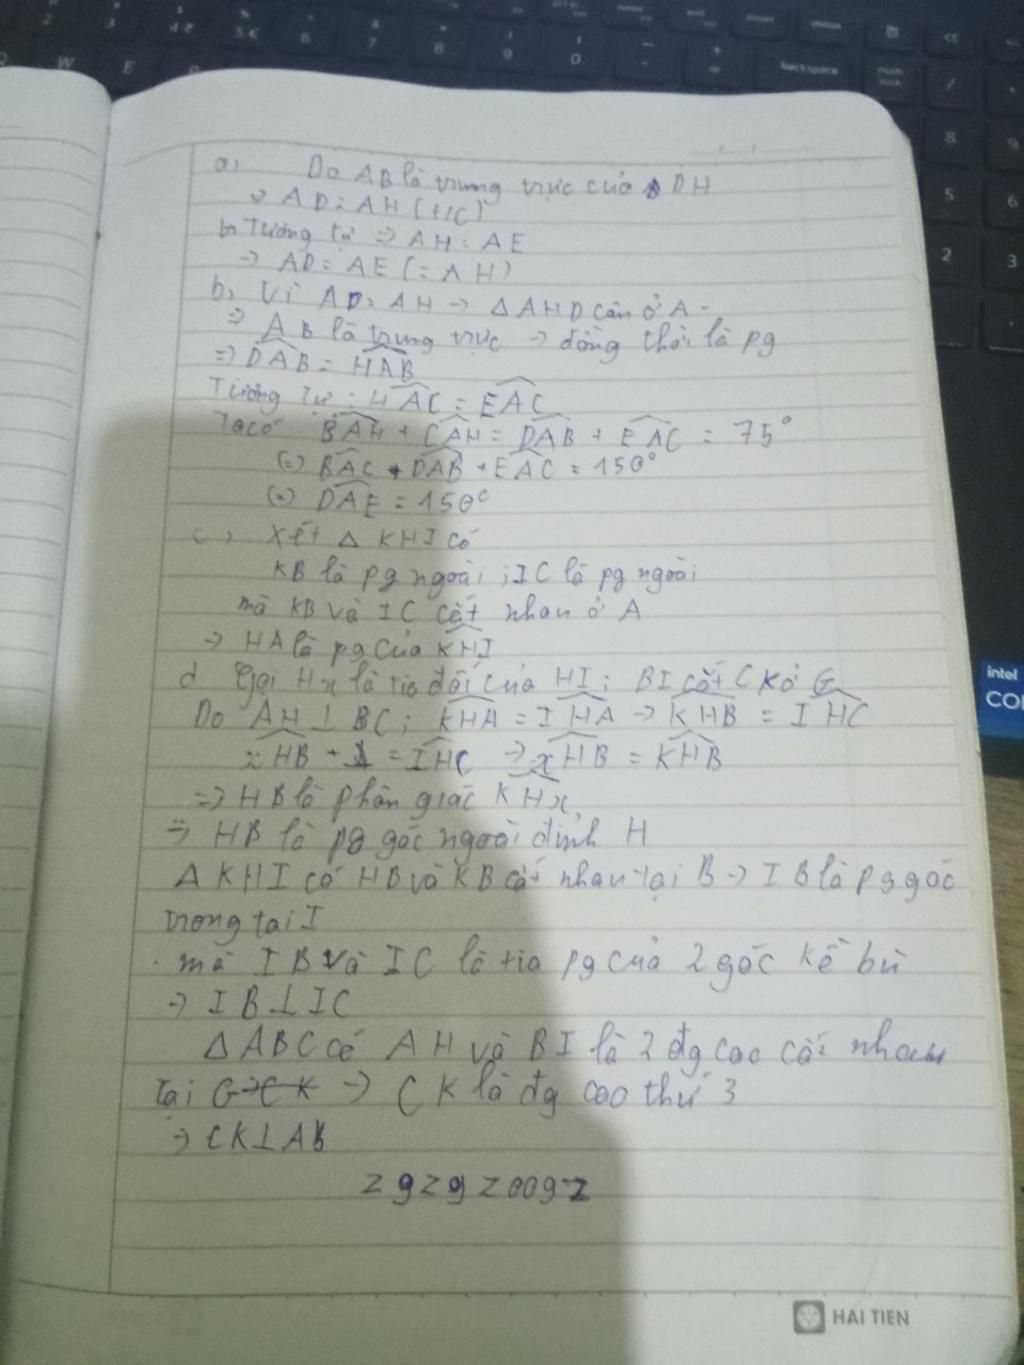 a, Do AB là trung trực của DH
=> AD = AH (t/c)
Tương tự => AH = AE
-> AD = AE (= AH)
b, Vì AD = AH -> △AHD cân ở A
=> AB là trung trực -> đồng thời là pg
=> DAB = HAB
Tương tự : HAC = EAC
Ta có BAH + CAH = DAB + EAC = 75°
(=) BAC + DAB + EAC = 150°
(=) DAE = 150°
c, Xét △ KHI có
KB là pg ngoài ; IC là pg ngoài
mà KB và IC cắt nhau ở A
-> HA là pg của KHI
d Gọi Hx là tia đối của HI ; BI cắt CK ở G
Do AH ⊥ BC ; KHA = IHA -> KHB = IHC
xHB = IHC -> xHB = KHB
=> HB là phân giác KHx
=> HB là pg góc ngoài đỉnh H
△ KHI có HB và KB cắt nhau tại B -> IB là pg góc
trong tại I
mà IB và IC là tia pg của 2 góc kề bù
-> IB ⊥ IC
△ABC có AH và BI là 2 đg cao cắt nhau
tại G -> CK -> CK là đg cao thứ 3
-> CK ⊥ AB
zgzgz009z
HAI TIEN
2 3 4 5 € 6 7 8 9 0 backspace
W E
8 9
5 6
2 3
intel
CO